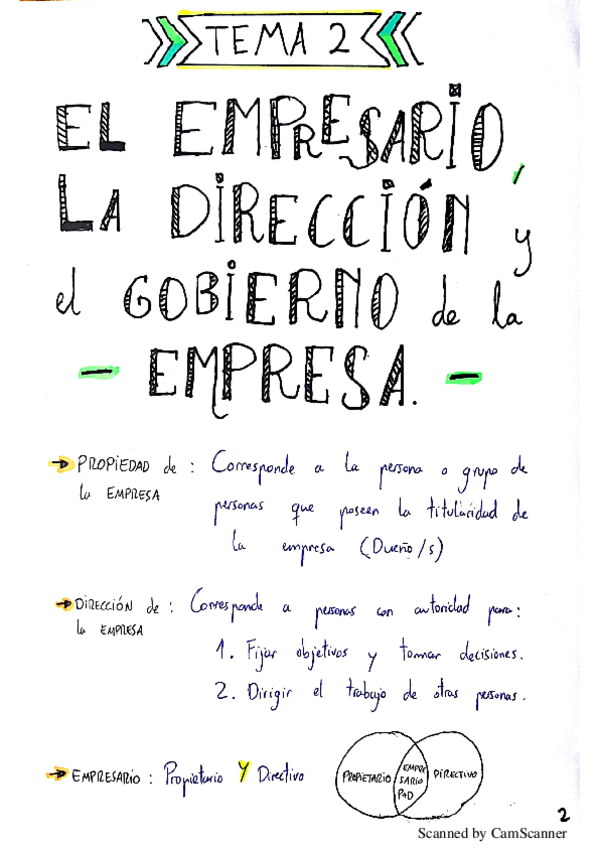 TEMA 2
EL EMPRESARIO,
LA DIRECCIÓN y
el GOBIERNO de la
- EMPRESA. -
→ PROPIEDAD de : Corresponde a la persona o grupo de
la EMPRESA personas que poseen la titularidad de
la empresa (Dueño/s)
→ DIRECCIÓN de : Corresponde a personas con autoridad para:
la EMPRESA 1. Fijar objetivos y tomar decisiones.
2. Dirigir el trabajo de otras personas.
→ EMPRESARIO : Propietario Y Directivo
PROPIETARIO
EMPRE
SARIO
P+D
DIRECTIVO
2
Scanned by CamScanner